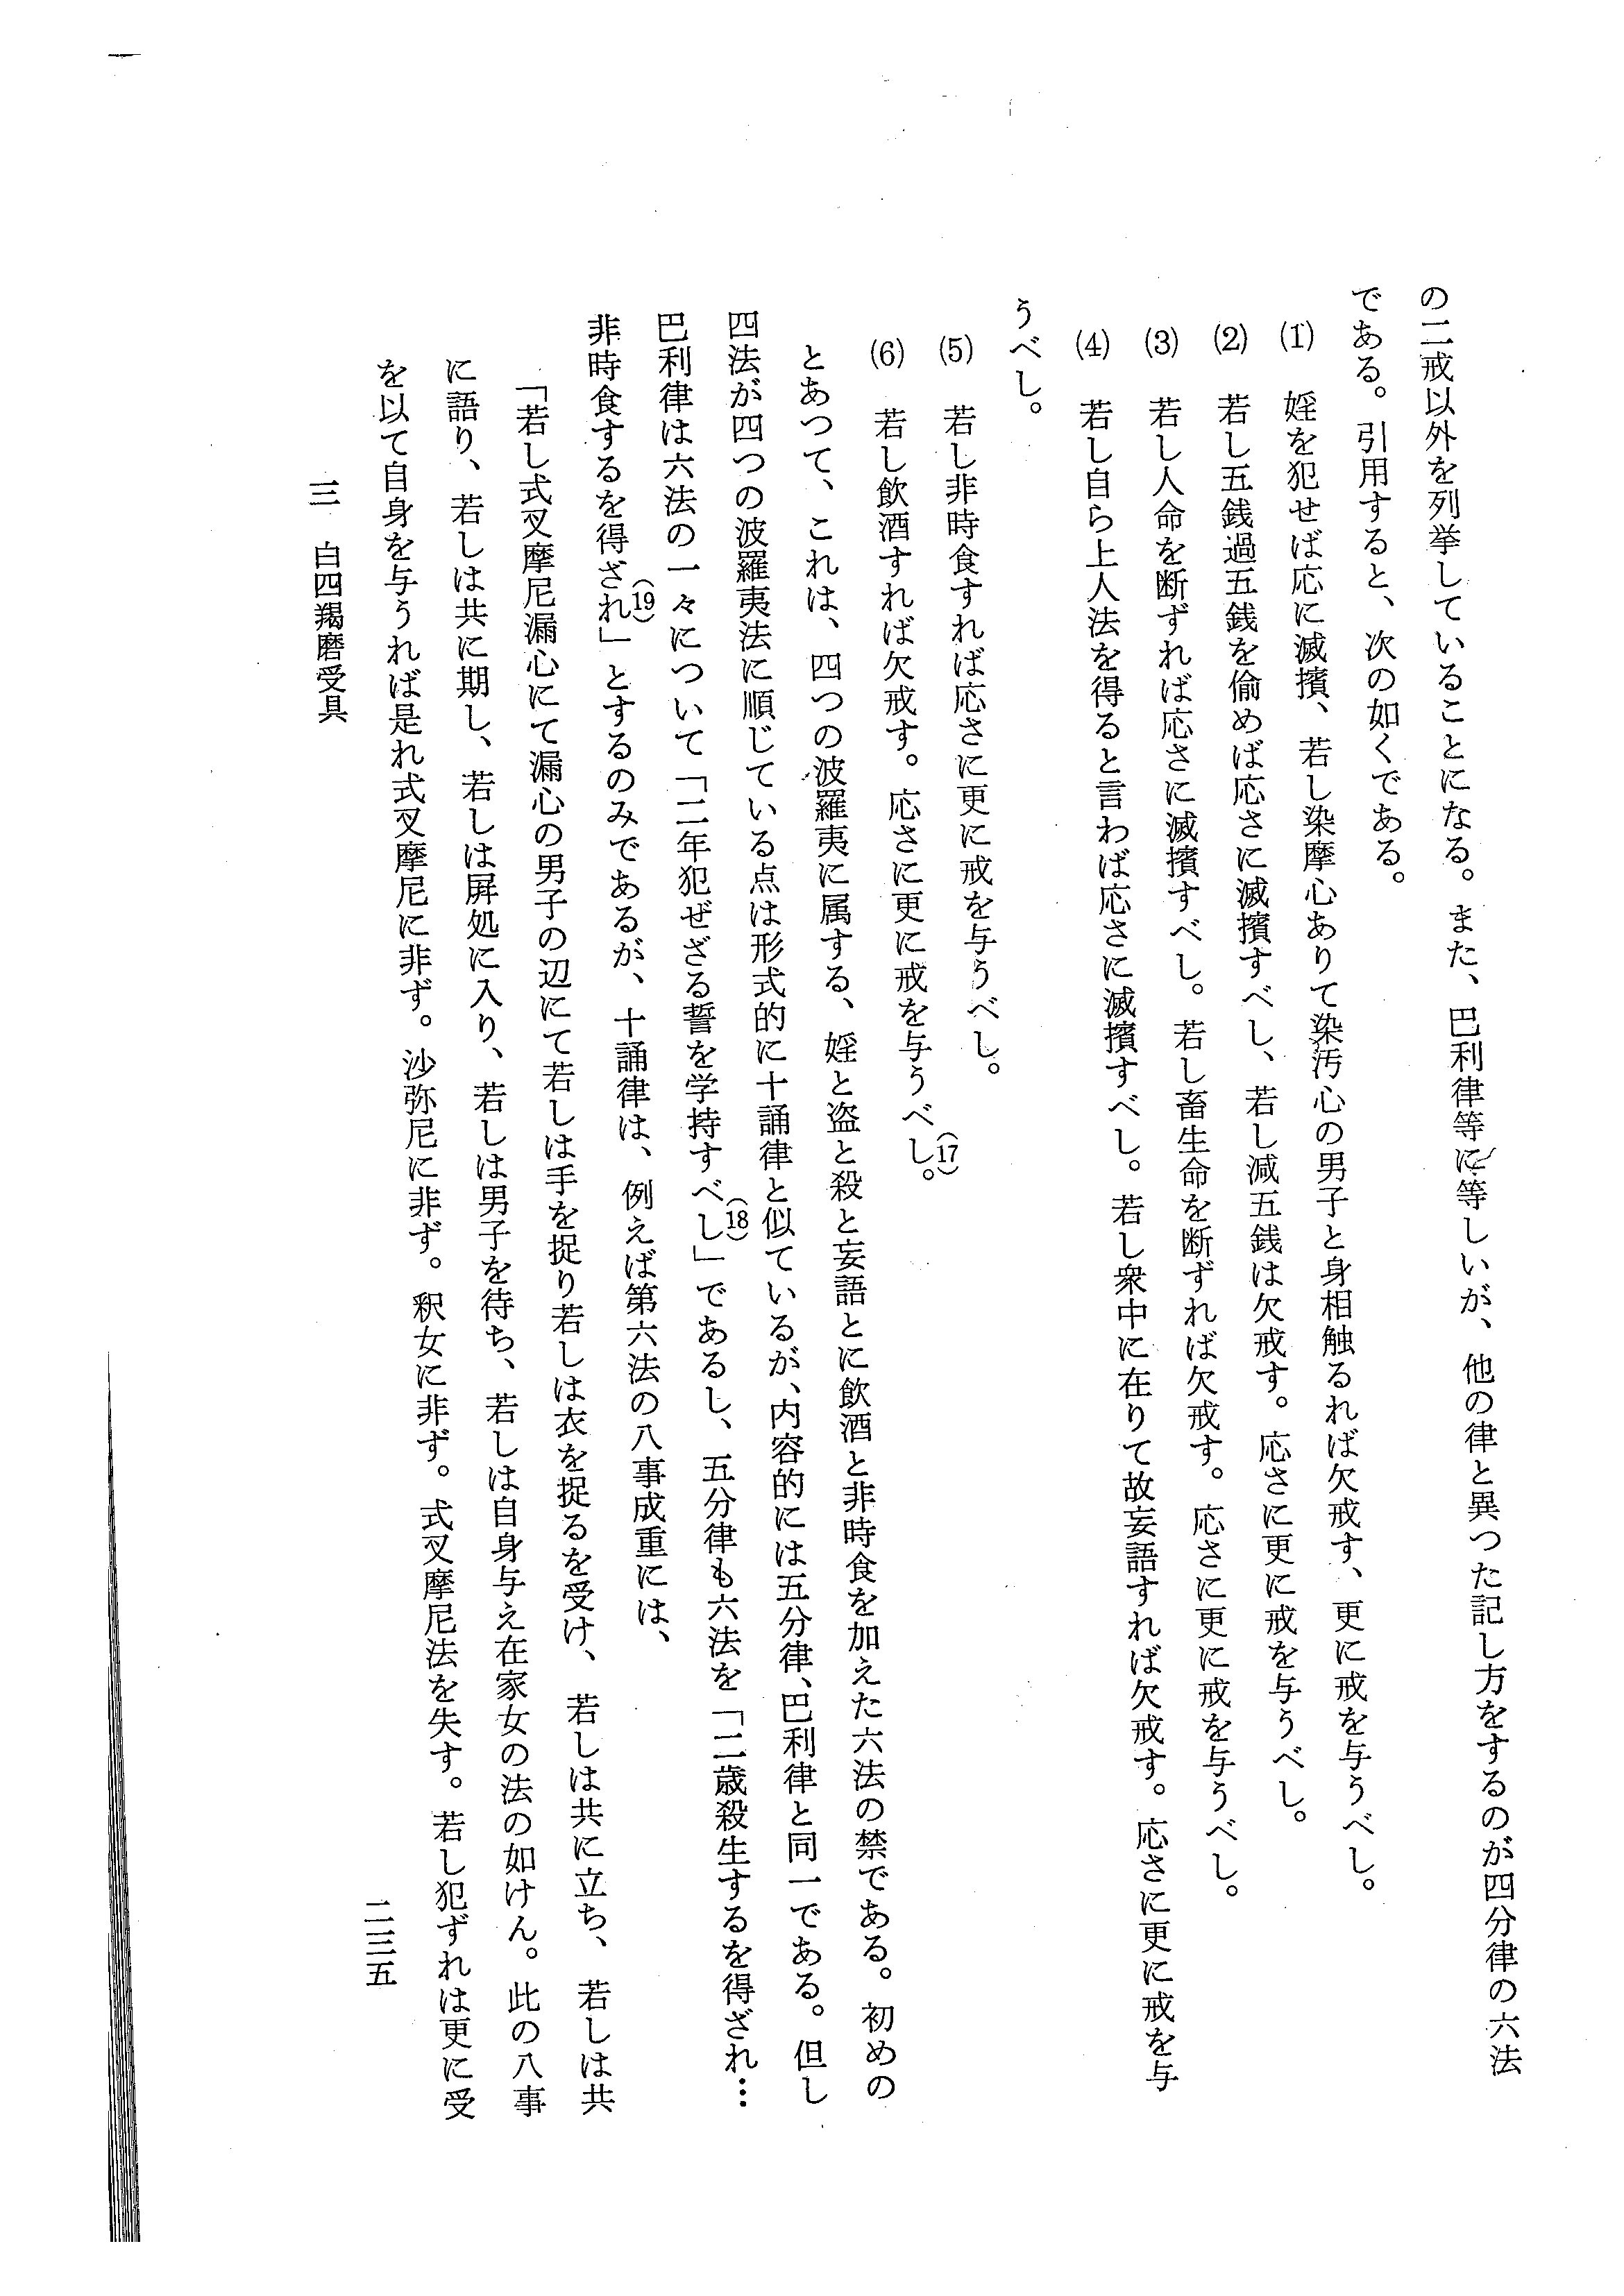 の二戒以外を列挙していることになる。また、巴利律等に等しいが、他の律と異つた記し方をするのが四分律の六法
である。引用すると、次の如くである。
(1) 婬を犯せば応に滅擯、若し染摩心ありて染汚心の男子と身相触るれば欠戒す、更に戒を与うべし。
(2) 若し五銭過五銭を偷めば応さに滅擯すべし、若し減五銭は欠戒す。応さに更に戒を与うべし。
(3) 若し人命を断ずれば応さに滅擯すべし。若し畜生命を断ずれば欠戒す。応さに更に戒を与うべし。
(4) 若し自ら上人法を得ると言わば応さに滅擯すべし。若し衆中に在りて故妄語すれば欠戒す。応さに更に戒を与
うべし。
(5) 若し非時食すれば応さに更に戒を与うべし。
(6) 若し飲酒すれば欠戒す。応さに更に戒を与うべし。(17)
とあつて、これは、四つの波羅夷に属する、婬と盗と殺と妄語とに飲酒と非時食を加えた六法の禁である。初めの
四法が四つの波羅夷法に順じている点は形式的に十誦律と似ているが、内容的には五分律、巴利律と同一である。但し
巴利律は六法の一々について「二年犯ぜざる誓を学持すべし」(18)であるし、五分律も六法を「二歳殺生するを得ざれ…
非時食するを得ざれ」(19)とするのみであるが、十誦律は、例えば第六法の八事成重には、
「若し式叉摩尼漏心にて漏心の男子の辺にて若しは手を捉り若しは衣を捉るを受け、若しは共に立ち、若しは共
に語り、若しは共に期し、若しは屏処に入り、若しは男子を待ち、若しは自身与え在家女の法の如けん。此の八事
を以て自身を与うれば是れ式叉摩尼に非ず。沙弥尼に非ず。釈女に非ず。式叉摩尼法を失す。若し犯ずれは更に受
三 白四羯磨受具
二三五